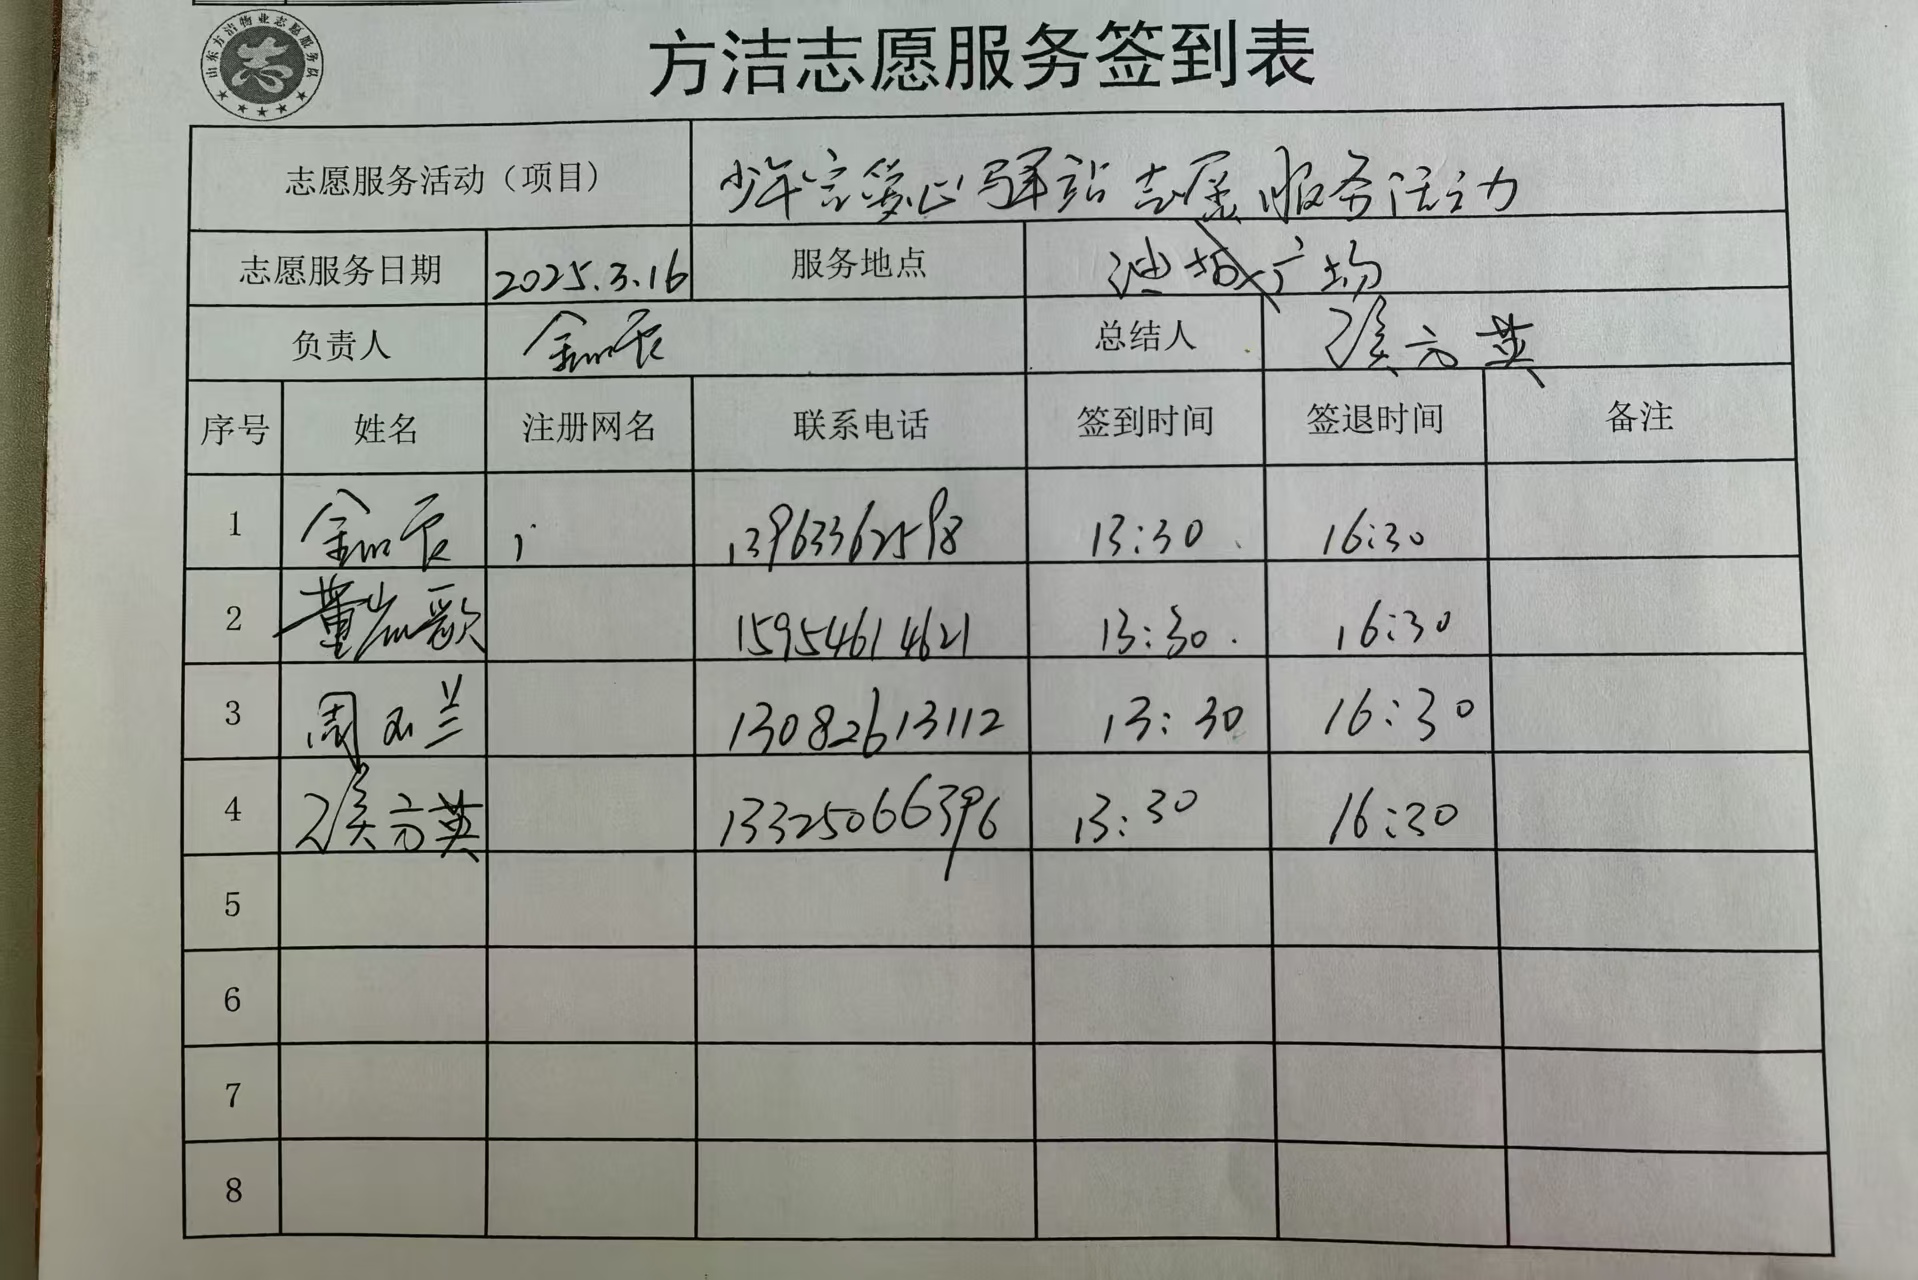 山东方洁物业志愿服务队
志
方洁志愿服务签到表
志愿服务活动（项目） 少年宫爱心驿站志愿服务活动
志愿服务日期 2025.3.16 服务地点 广场
负责人 总结人 侯方英
序号 姓名 注册网名 联系电话 签到时间 签退时间 备注
1 13963362598 13:30 16:30
2 董岩歌 15954614621 13:30. 16:30
3 周玉兰 13082613112 13:30 16:30
4 侯方英 13325066396 13:30 16:30
5
6
7
8